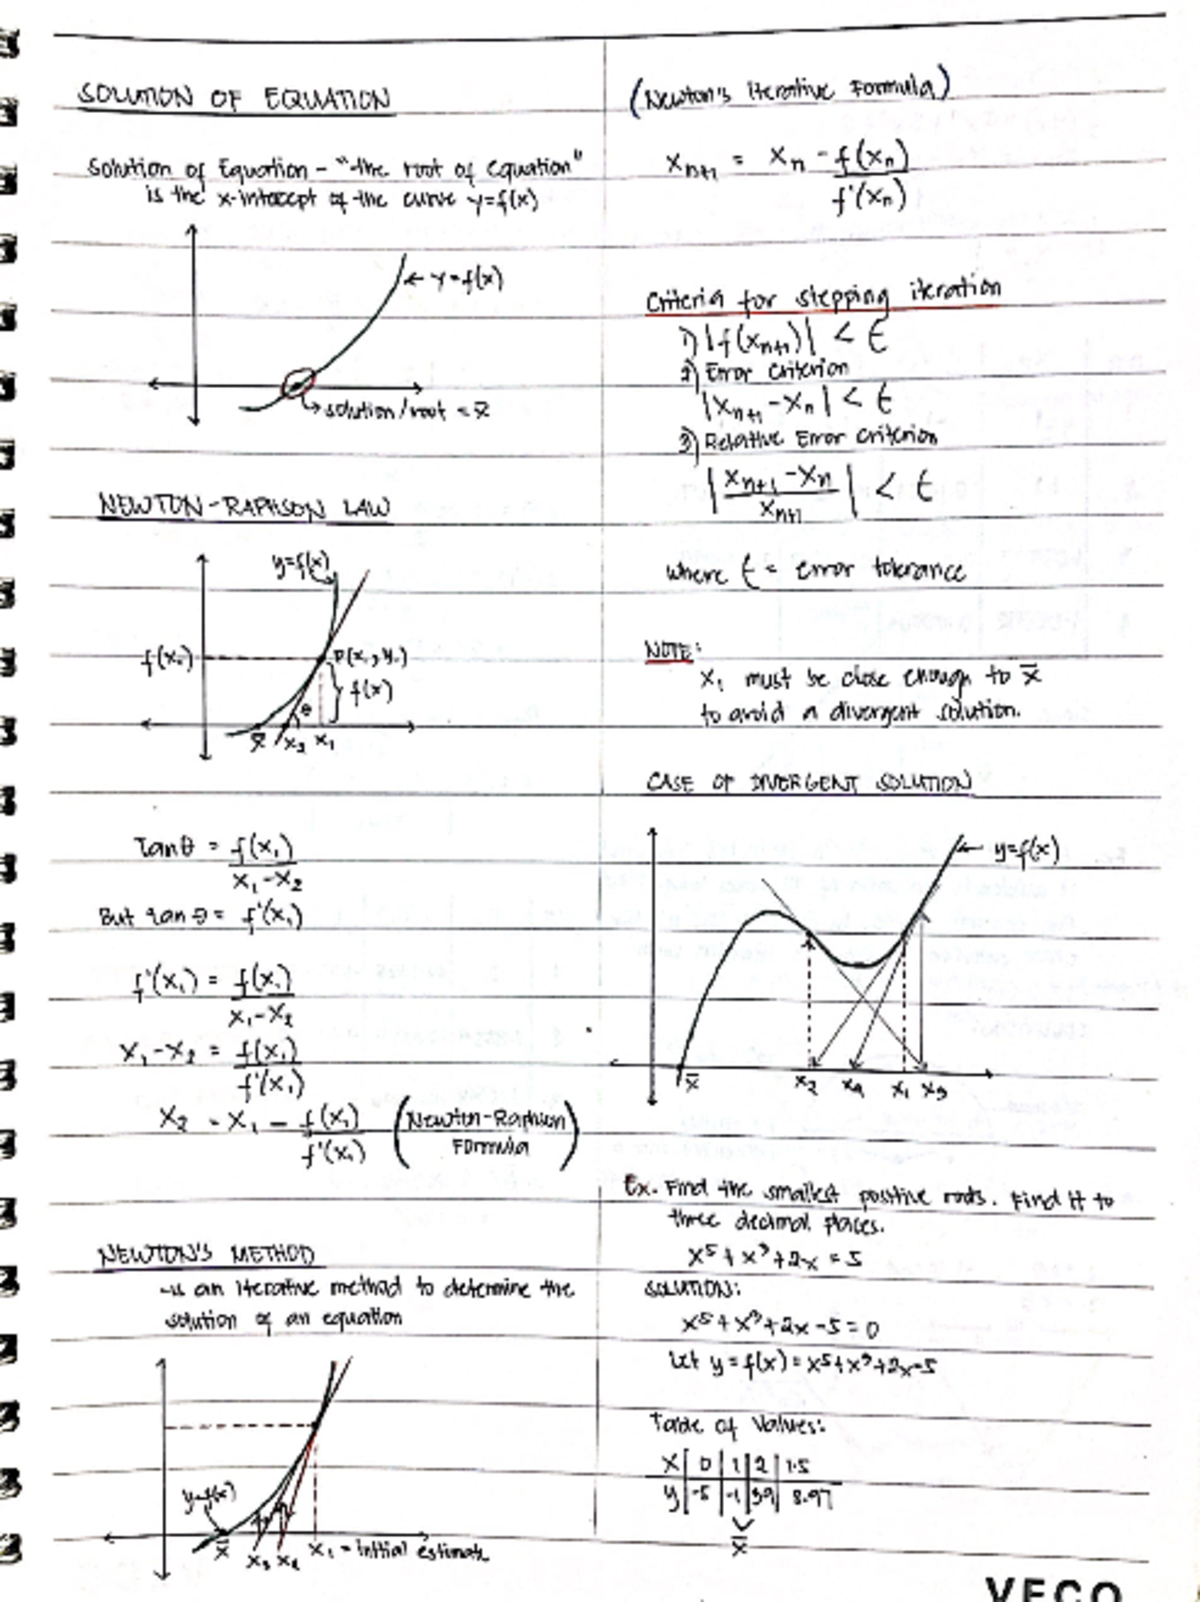 SOLUTION OF EQUATION
Solution of Equation - "the root of equation"
is the x-intercept of the curve y=f(x)
← y=f(x)
solution/root = x̄
NEWTON-RAPHSON LAW
y=f(x)
f(x₁)
P(x₁, y₁)
f(x)
θ
x̄ x₂ x₁
Tanθ = f(x₁) / x₁-x₂
But tan θ = f'(x₁)
f'(x₁) = f(x₁) / x₁-x₂
x₁-x₂ = f(x₁) / f'(x₁)
x₂ = x₁ - f(x₁) / f'(x₁) (Newton-Raphson Formula)
NEWTON'S METHOD
-is an iterative method to determine the
solution of an equation
y=f(x)
x̄ x₃ x₂ x₁ = initial estimate
(Newton's Iterative Formula)
xₙ₊₁ = xₙ - f(xₙ) / f'(xₙ)
Criteria for stopping iteration
1) |f(xₙ₊₁)| < t
2) Error Criterion
|xₙ₊₁ - xₙ| < t
3) Relative Error Criterion
|xₙ₊₁ - xₙ / xₙ₊₁| < t
where t = error tolerance
NOTE:
x₁ must be close enough to x̄
to avoid a divergent solution.
CASE OF DIVERGENT SOLUTION
← y=f(x)
x̄ x₂ x₄ x₁ x₃
Ex. Find the smallest positive roots. Find it to
three decimal places.
x⁵ + x³ + 2x = 5
SOLUTION:
x⁵ + x³ + 2x - 5 = 0
Let y = f(x) = x⁵ + x³ + 2x - 5
Table of Values:
x | 0 | 1 | 2 | 1.5
y | -5 | -1 | 39 | 8.97
x̄
VECO